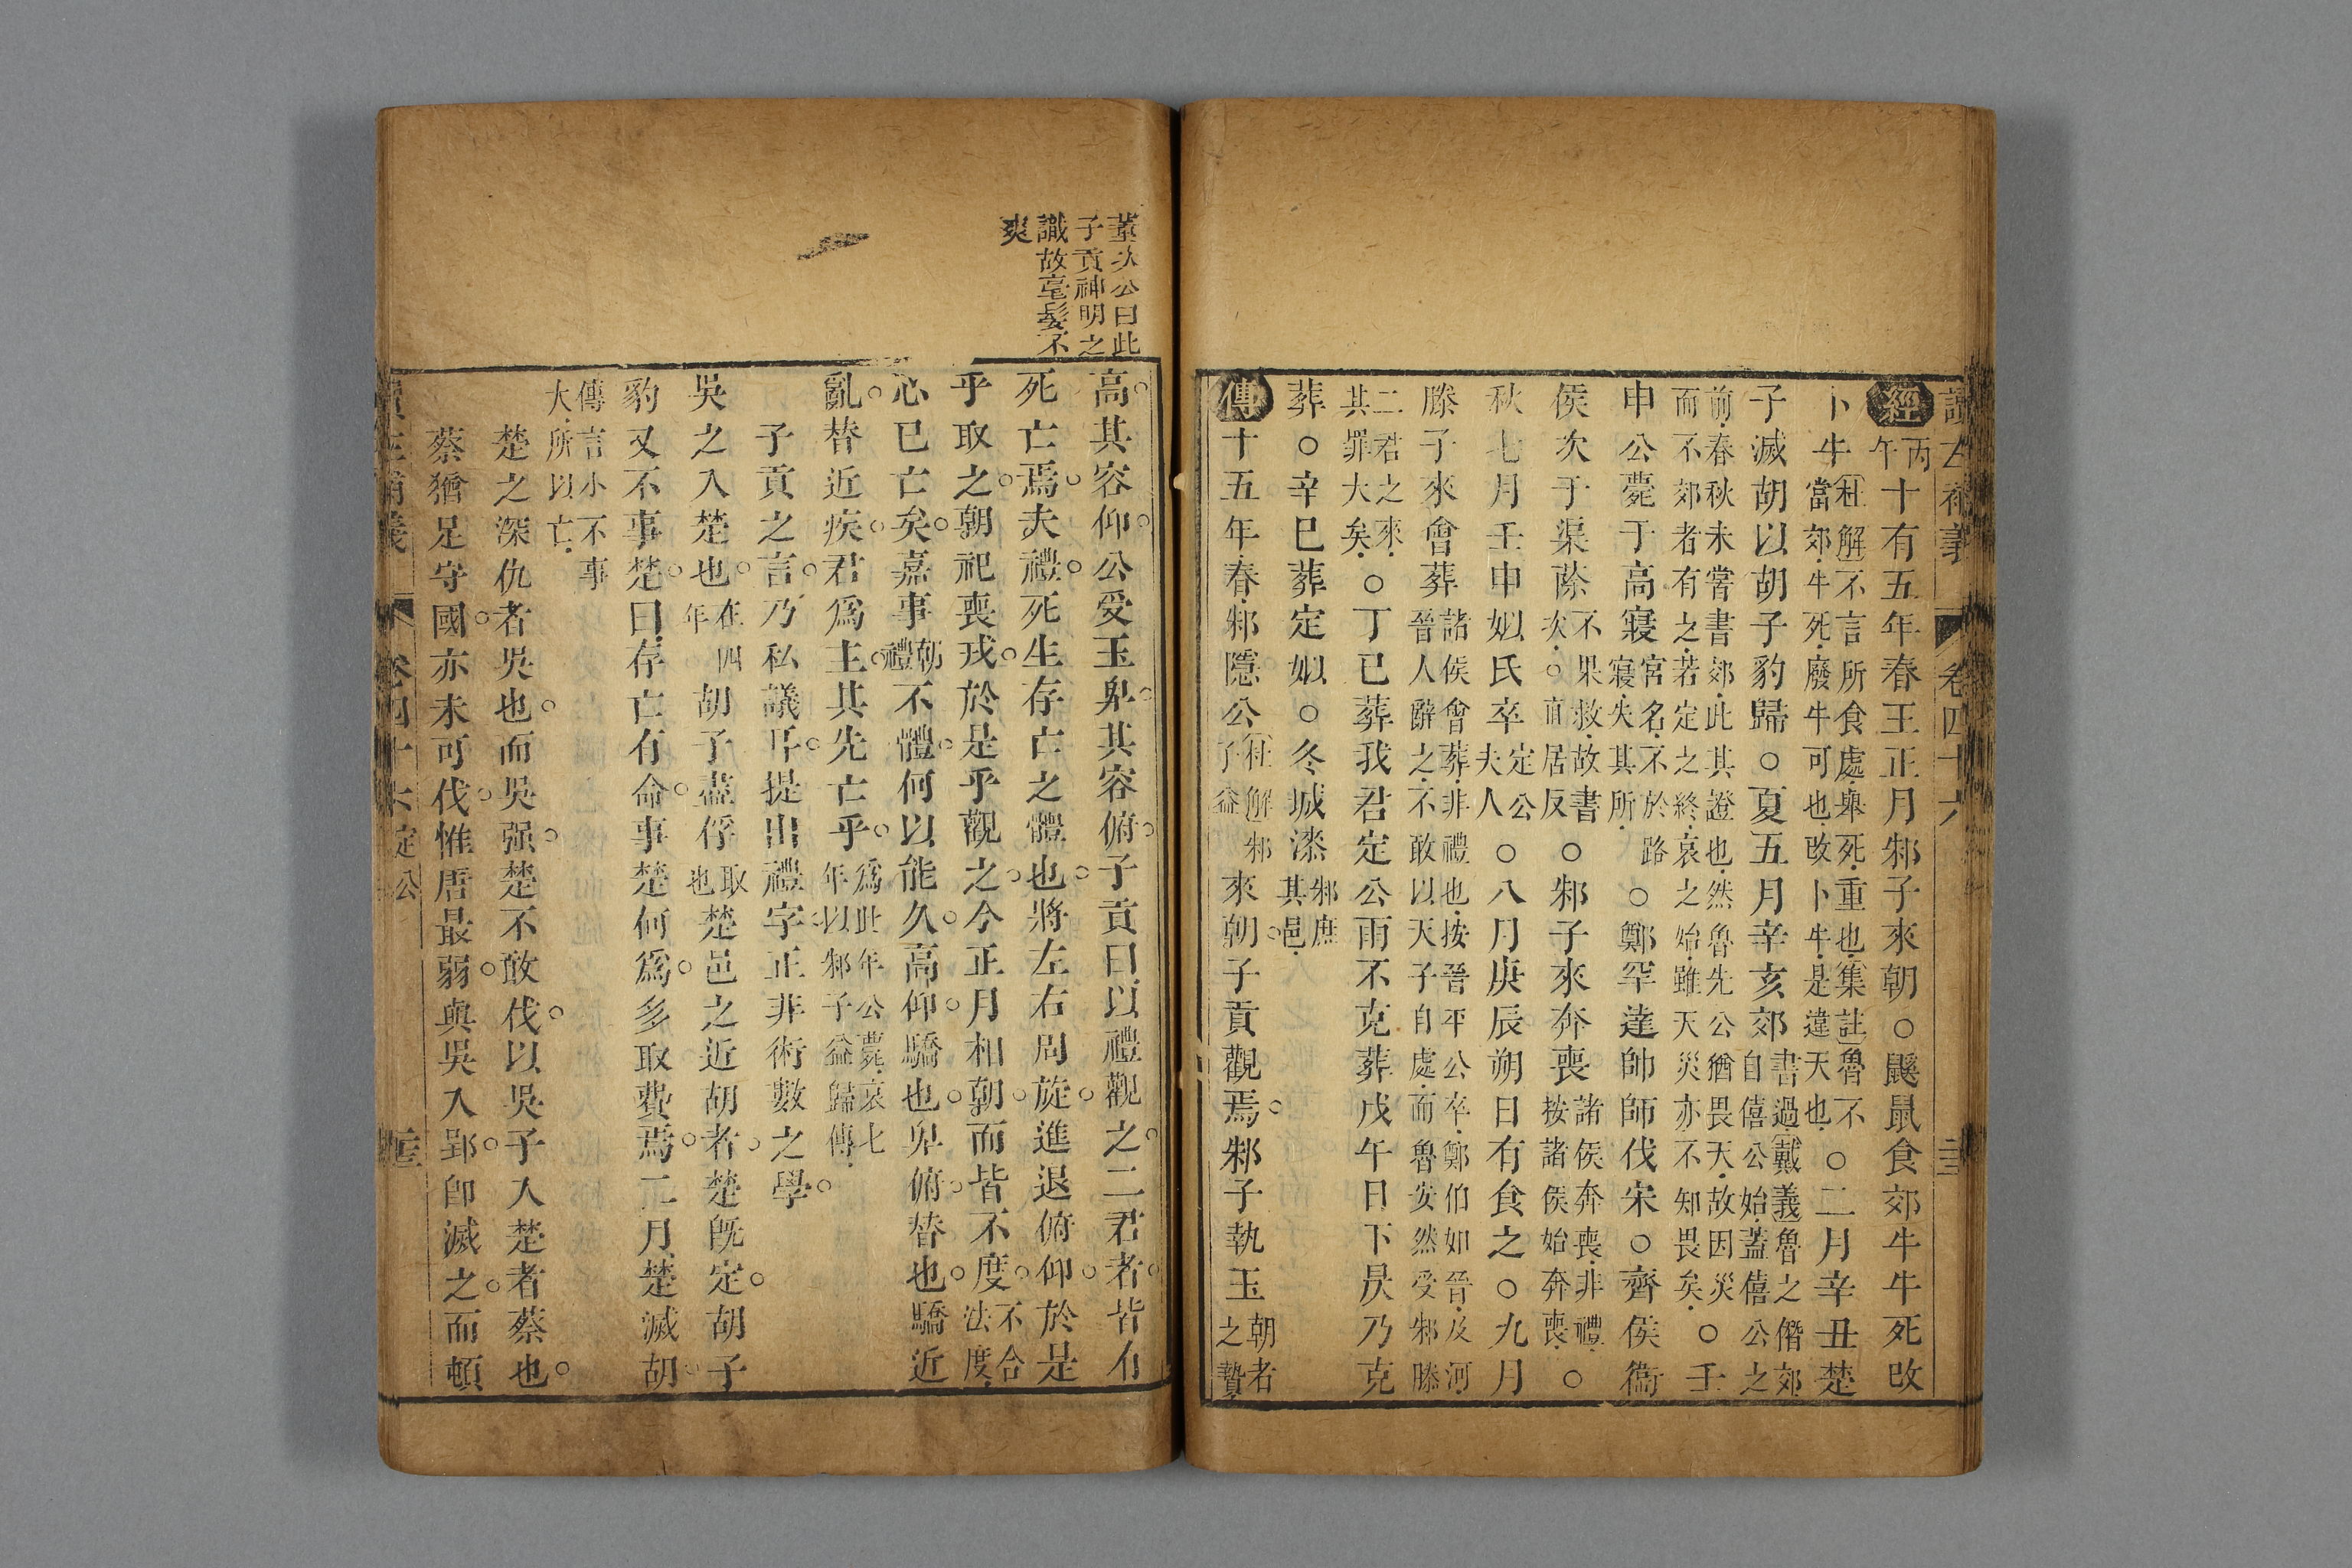 讀左補義 卷四十六
經丙午十有五年春王正月邾子來朝○鼷鼠食郊牛牛死改
卜牛杜解不言所食處舉死重也集註魯不當郊牛死廢牛可也改卜牛是違天也○二月辛丑楚
子滅胡以胡子豹歸○夏五月辛亥郊書過戴義魯之僭郊自僖公始蓋僖公之
前春秋未嘗書郊此其證也然魯先公猶畏天故因災而不郊者有之若定之終哀之始雖天災亦不知畏矣○壬
申公薨于高寢宮名不於路寢失其所○鄭罕達帥師伐宋○齊侯衞
侯次于渠蒢不果救故書次○直居反○邾子來奔喪諸侯奔喪非禮按諸侯始奔喪○
秋七月壬申姒氏卒定公夫人○八月庚辰朔日有食之○九月
滕子來會葬諸侯會葬非禮也按晉平公卒鄭伯如晉及河晉人辭之不敢以天子自處而魯安然受邾滕
二君之來其罪大矣○丁巳葬我君定公雨不克葬戊午日下昃乃克
葬○辛巳葬定姒○冬城漆邾庶其邑
傳十五年春邾隱公杜解邾子益來朝子貢觀焉邾子執玉朝者之贄
董次公曰此
子貢神明之
識故毫髮不
爽
高其容仰公受玉卑其容俯子貢曰以禮觀之二君者皆有
死亡焉夫禮死生存亡之體也將左右周旋進退俯仰於是
乎取之朝祀喪戎於是乎觀之今正月相朝而皆不度不合法度
心已亡矣嘉事朝禮不體何以能久高仰驕也卑俯替也驕近
亂替近疾君爲主其先亡乎爲此年公薨哀七年以邾子益歸傳
子貢之言乃私議耳提出禮字正非術數之學
吳之入楚也在四年胡子盡俘取也楚邑之近胡者楚既定胡子
豹又不事楚曰存亡有命事楚何爲多取費焉二月楚滅胡
傳言小不事大所以亡
楚之深仇者吳也而吳强楚不敢伐以吳子入楚者蔡也
蔡猶足守國亦未可伐惟唐最弱與吳入郢卽滅之而頓
讀左補義 卷四十六定公